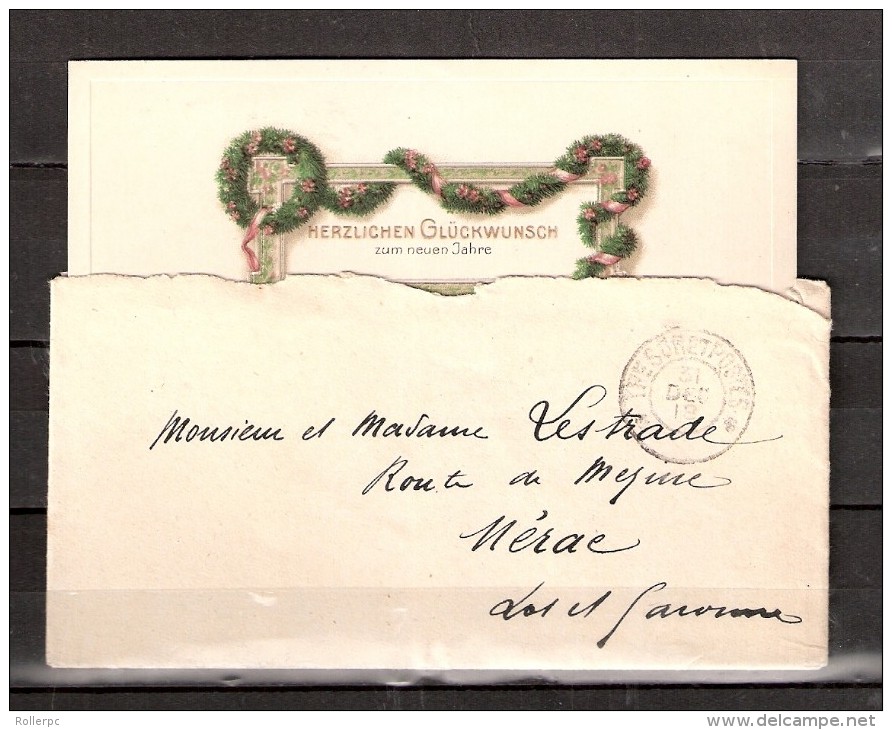 HERZLICHEN GLÜCKWUNSCH
zum neuen Jahre
TRESOR ET POSTES
31
DEC
19
Monsieur et Madame Lestrade
Route de Mezine
Nérac
Lot et Garonne
Rollerpc
www.delcampe.net